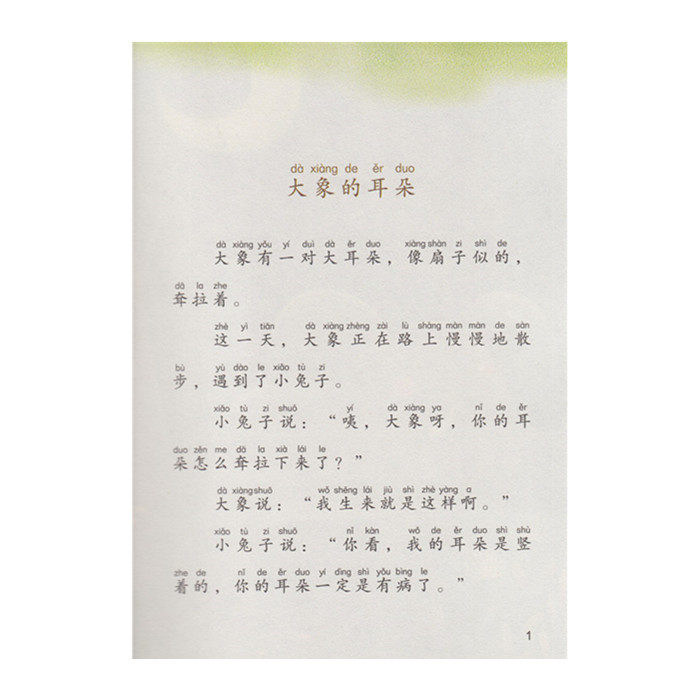 dà xiàng de ěr duo
大象的耳朵
dà xiàng yǒu yí duì dà ěr duo xiàng shàn zi shì de
大象有一对大耳朵，像扇子似的，
dā la zhe
耷拉着。
zhè yì tiān dà xiàng zhèng zài lù shàng màn màn de sàn
这一天，大象正在路上慢慢地散
bù yù dào le xiǎo tù zi
步，遇到了小兔子。
xiǎo tù zi shuō yí dà xiàng ya nǐ de ěr
小兔子说：“咦，大象呀，你的耳
duo zěn me dā la xià lái le
朵怎么耷拉下来了？”
dà xiàng shuō wǒ shēng lái jiù shì zhè yàng a
大象说：“我生来就是这样啊。”
xiǎo tù zi shuō nǐ kàn wǒ de ěr duo shì shù
小兔子说：“你看，我的耳朵是竖
zhe de nǐ de ěr duo yí dìng shì yǒu bìng le
着的，你的耳朵一定是有病了。”
1